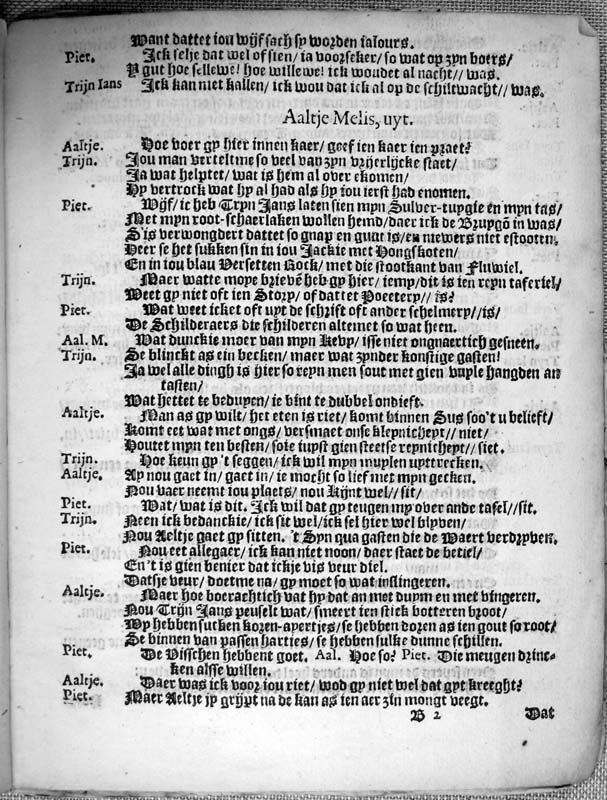 Want dattet iou wijf sach sy worden ialours.
Piet. Ick selje dat wel of sien/ ia voorseker/ so wat op zyn boers/
Y gut hoe sellewe! hoe willewe! ick woudet al nacht// was.
Trijn Ians Ick kan niet kallen/ ick wou dat ick al op de schiltwacht// was.
Aaltje Melis, uyt.
Aaltje. Hoe voer gy hier innen kaer/ geef ien kaer ien praet?
Trijn. Jou man verteltme so veel van zyn vrijerlijcke staet/
Ja wat helptet/ wat is hem al over ekomen/
Hy vertrock wat hy al had als hy iou ierst had enomen.
Piet. Wijf/ ic heb Tryn Jans laten sien myn Sulver-tuygie en myn tas/
Met myn root-schaerlaken wollen hemd/ daer ick de Bruygõ in was/
S'is verwongdert dattet so gnap en guut is/ en niewers niet estooten.
Heer se het sukken sin in iou Jackie met Hongskoten/
En in iou blau Versetten Rock/ met die stootkant van Fluwiel.
Trijn. Maer watte moye brievẽ heb gy hier/ iemy/ dit is ien reyn taferiel/
Weet gy niet oft ien Story/ of dattet Poeetery// is?
Piet. Wat weet icket oft uyt de schrift oft ander schelmery//is/
De Schilderaers die schilderen altemet so wat heen.
Aal. M. Wat dunckie moer van myn Kevy/ isse niet ongnaertich gesneen.
Trijn. Se blinckt as ein becken/ maer wat zynder konstige gasten!
Ja wel alle dingh is hier so reyn men sout met gien vuyle hangden an
tasten/
Wat hettet te beduyen/ ie bint te dubbel ondieft.
Aaltje. Man as gy wilt/ het eten is riet/ komt binnen Sus soo't u belieft/
Komt eet wat met ongs/ versmaet onse kleynicheyt// niet/
Houtet myn ten besten/ soie iupst gien steetse reynicheyt// siet.
Trijn. Hoe keun gy 't seggen/ ick wil myn muylen uyttrecken.
Aaltje. Ay nou gaet in/ gaet in/ ie mocht so lief met myn gecken.
Nou vaer neemt iou plaets/ nou Kijnt wel// sit/
Piet. Wat/ wat is dit. Ick wil dat gy teugen my over ande tafel//sit.
Trijn. Neen ick bedanckie/ ick sit wel/ ick sel hier wel blyven/
Nou Aeltje gaet gy sitten. 't Syn qua gasten die de Waert verdryven.
Piet. Nou eet allegaer/ ick kan niet noon/ daer staet de betiel/
En't is gien benier dat ickje vis veur diel.
Datsje veur/ doetme na/ gy moet so wat inslingeren.
Aaltje. Maer hoe boerachtich vat hy dat an met duym en met vingeren.
Nou Trijn Jans peuselt wat/ smeert ien stick botteren broot/
Wy hebben sucken koren-ayertjes/ se hebben doren as ien gout so root/
Se binnen van passen hartjes/ se hebben sulke dunne schillen.
Piet. De Visschen hebbent goet. Aal. Hoe so? Piet. Die meugen drinc-
ken alsse willen.
Aaltje. Daer was ick voor iou riet/ wod gy niet wel dat gyt kreeght?
Piet. Maer Aeltje jy grijpt na de kan as ien aer zin mongt veegt.
B 2 Dat